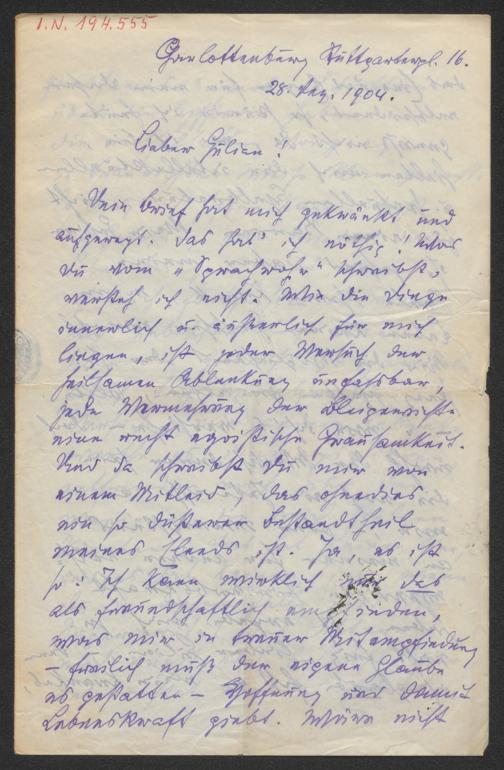 I.N. 194.555
Charlottenburg Stuttgarterpl. 16.
28. Dez. 1904.
Lieber Julian!
Dein Brief hat mich gekränkt und
aufgeregt. Das hat' ich nöthig! Was
Du vom „Sprachrohr“ schreibst,
versteh ich nicht. Wie die Dinge
innerlich u. äußerlich für mich
liegen, ist jeder Versuch der
heilsamen Ablenkung unfassbar,
jede Vermehrung der Bleigewichte
eine recht egoistische Grausamkeit.
Und da schreibst Du mir von
einem Mitleid, das ohnedies
ein so düsterer Bestandtheil
meines Elends ist. Ja, es ist
so: Ich kann wirklich nur das
als freundschaftlich empfinden,
was mir in treuer Mitempfindung
– freilich muß der eigene Glaube
es gestatten – Hoffnung und damit
Lebenskraft giebt. Wäre nicht